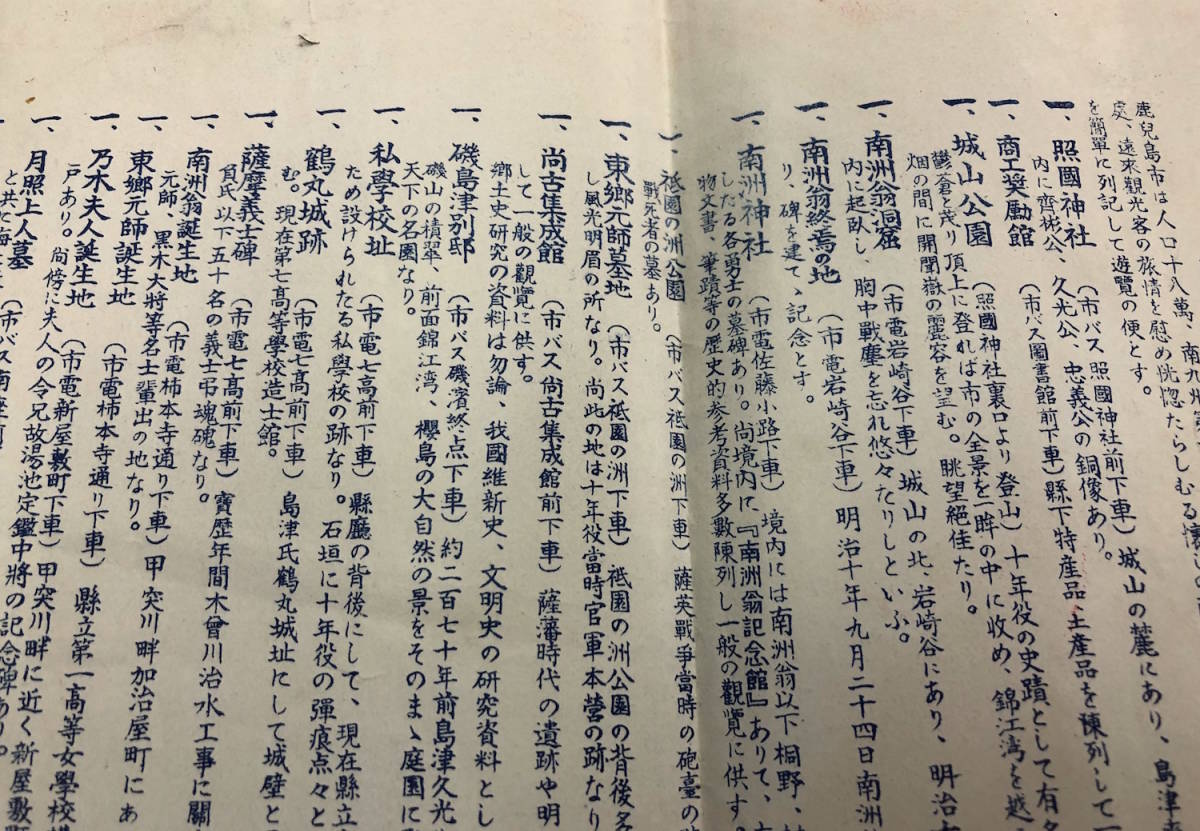 鹿兒島市は人口十八萬、南九州
處、遠來觀光客の旅情を慰め恍惚たらしむる
を簡單に列記して遊覽の便とす。
一、照國神社 (市バス照國神社前下車) 城山の麓にあり、島津
内に齊彬公、久光公、忠義公の銅像あり。
一、商工奬勵館 (市バス圖書館前下車) 縣下特産品、土産品を陳列して一
一、城山公園 (照國神社裏口より登山) 十年役の史蹟として有名
鬱蒼と茂り頂上に登れば市の全景を一眸の中に收め、錦江湾を越
畑の間に開聞嶽の靈容を望む。眺望絕佳たり。
一、南洲翁洞窟 (市電岩崎谷下車) 城山の北、岩崎谷にあり、明治十
内に起臥し、胸中戰塵を忘れ悠々たりしといふ。
一、南洲翁終焉の地 (市電岩崎谷下車) 明治十年九月二十四日南洲
り、碑を建て、記念とす。
一、南洲神社 (市電佐藤小路下車) 境内には南洲翁以下桐野、
したる各勇士の墓碑あり。尚境内に『南洲翁記念館』ありて、
物文書、筆蹟等の歴史的参考資料多數陳列し一般の觀覽に供す。
一、祗園の洲公園 (市バス祗園の洲下車) 薩英戰爭當時の砲臺の
戰死者の墓あり。
一、東郷元帥墓地 (市バス祗園の洲下車) 祗園の洲公園の背後
し風光明眉の所なり。尚此の地は十年役當時官軍本營の跡なり
一、尚古集成館 (市バス尚古集成館前下車) 薩藩時代の遺跡や明
して一般の觀覽に供す。
鄉土史研究の資料は勿論、我國維新史、文明史の研究資料とし
一、磯島津別邸 (市バス磯濱終点下車) 約二百七十年前島津久光
磯山の積翠、前面錦江湾、櫻島の大自然の景をそのまゝ庭園に
天下の名園なり。
一、私學校址 (市電七高前下車) 縣廳の背後にして、現在縣立
ため設けられたる私學校の跡なり。石垣に十年役の彈痕点々と
一、鶴丸城跡 (市電七髙前下車) 島津氏鶴丸城址にして城壁と
む。現在第七髙等學校造士館。
一、薩摩義士碑 (市電七髙前下車) 寶歴年間木曾川治水工事に關
負氏以下五十名の義士弔魂碑なり。
一、南洲翁誕生地 (市電柿本寺通り下車) 甲突川畔加治屋町にあ
元帥、黒木大將等名士輩出の地なり。
一、東郷元帥誕生地 (市電柿本寺通り下車) 縣立第一高等女學校
一、乃木夫人誕生地 (市電新屋敷町下車) 甲突川畔に近く新屋敷
戸あり。尚傍に夫人の令兄故湯池定鑑中將の記念碑あり。
一、月照上人墓 (市バス南
と共に海